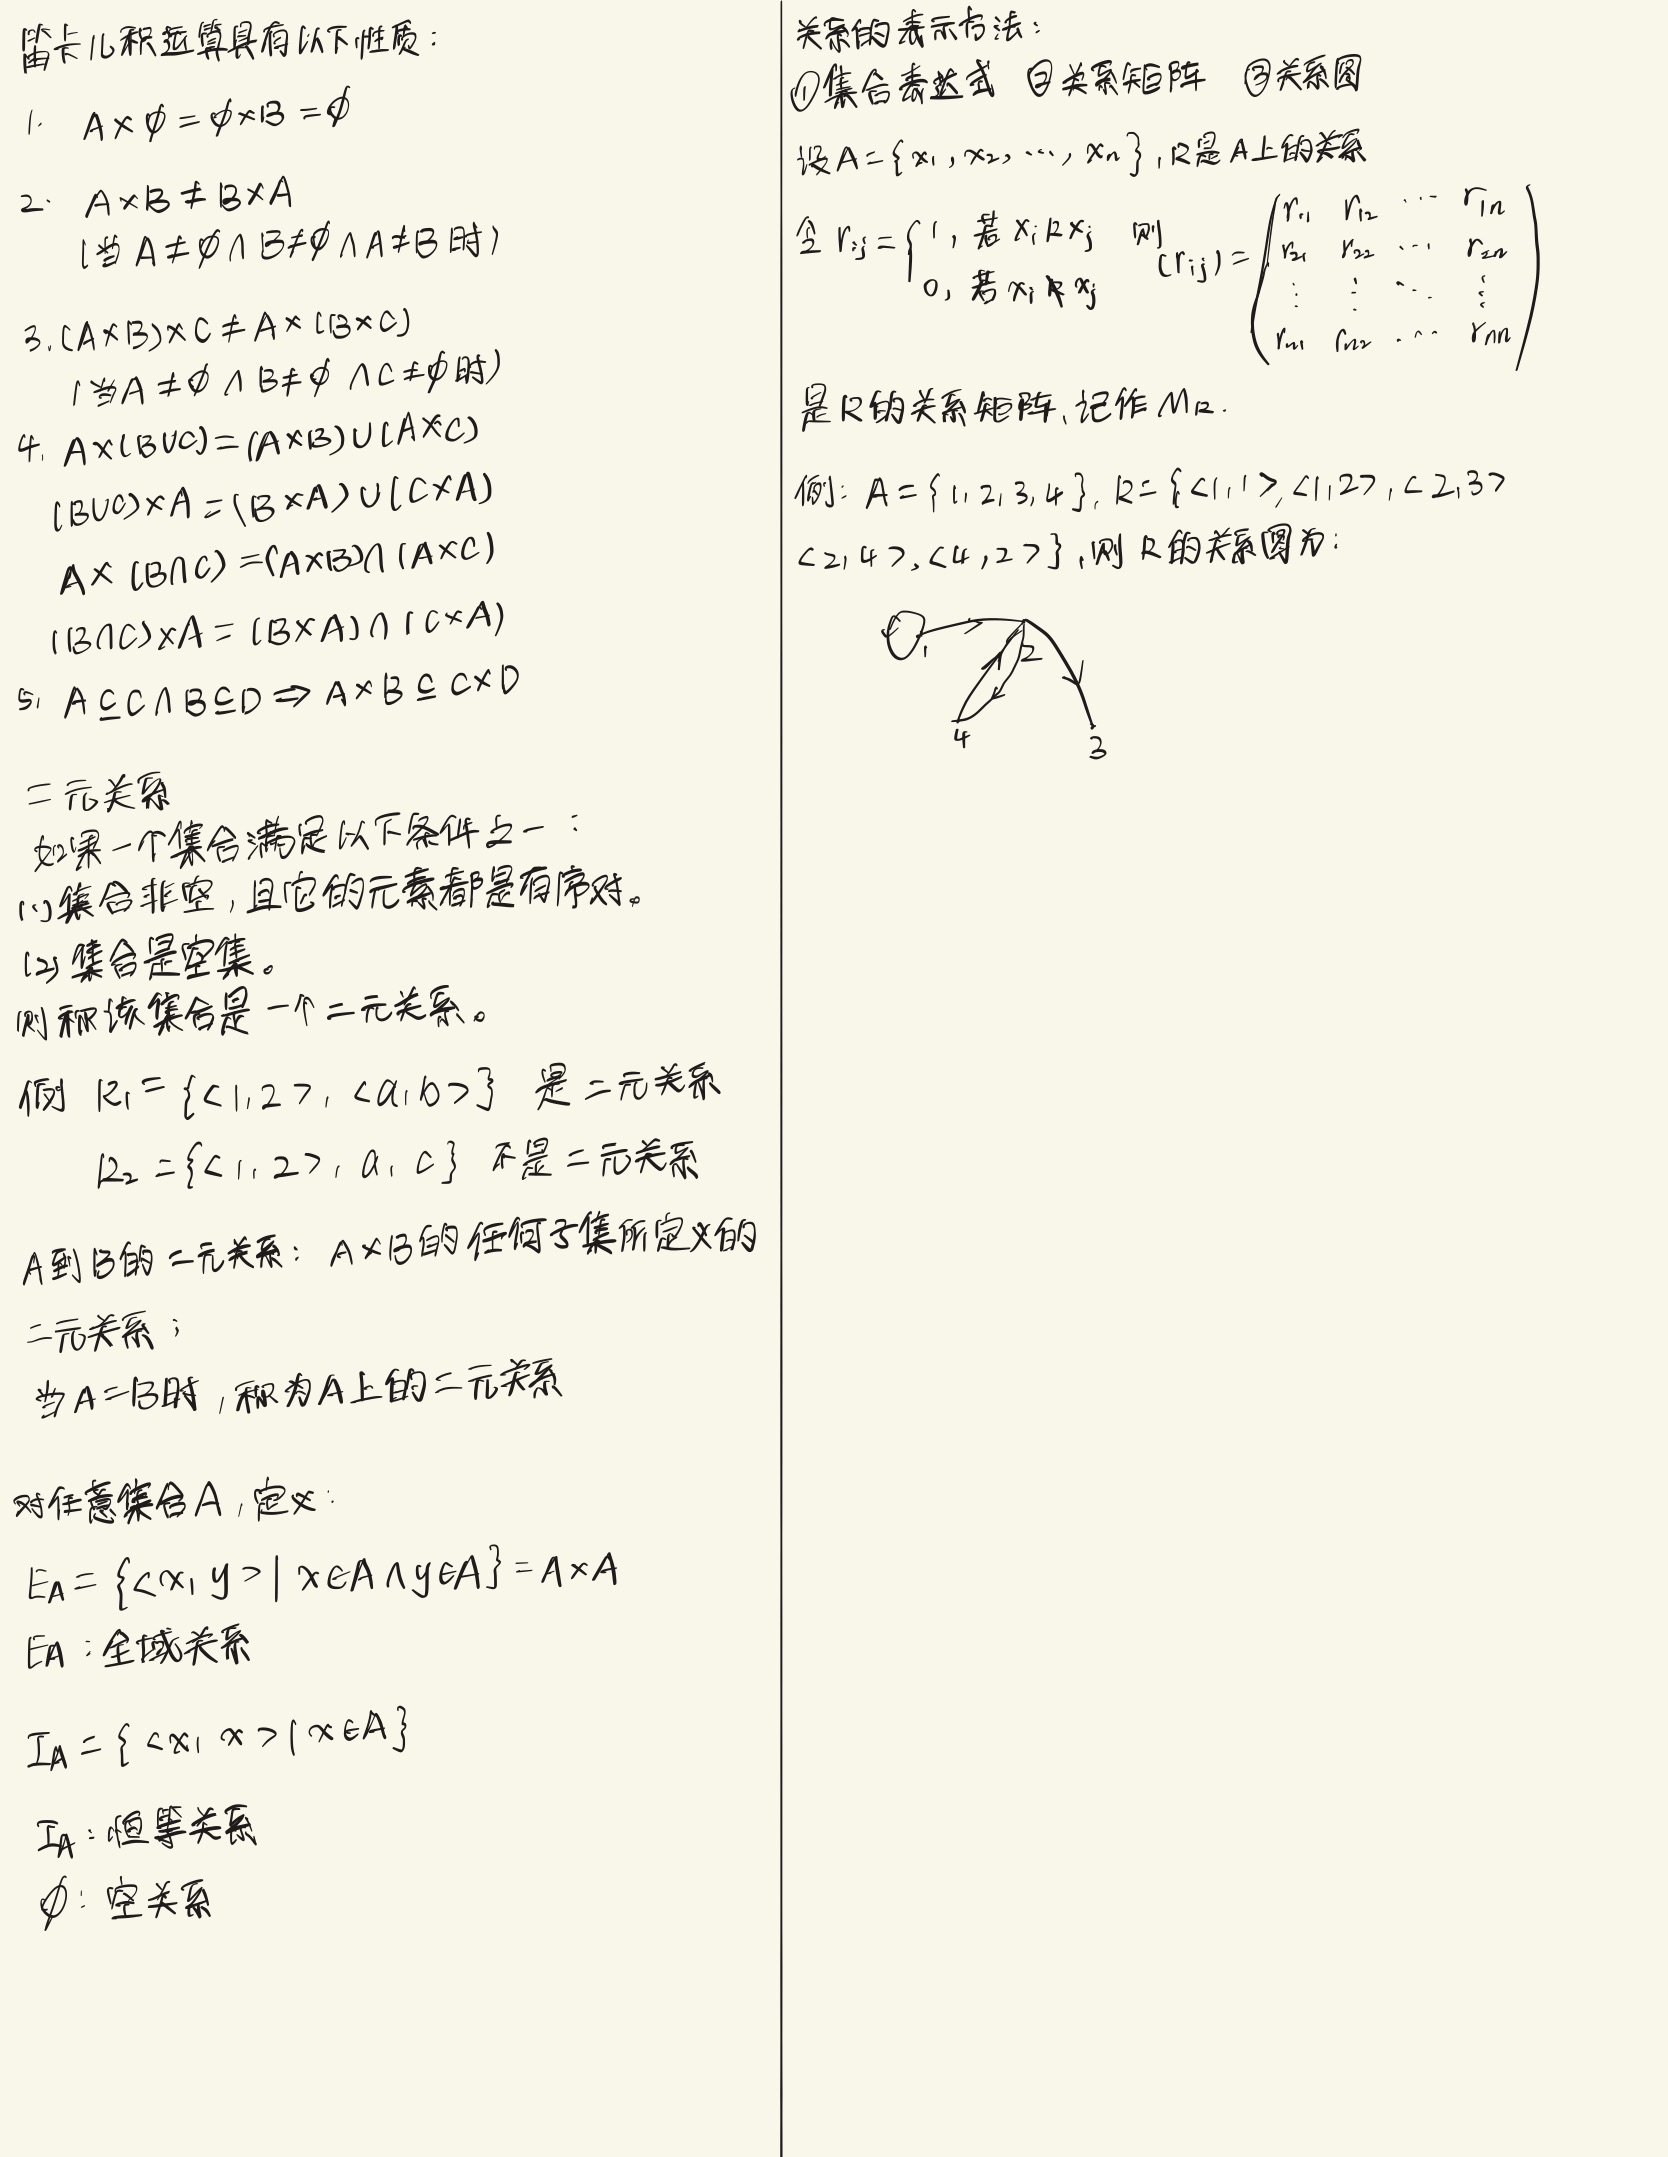 笛卡儿积运算具有以下性质:
1. A×∅=∅×B=∅
2. A×B≠B×A
(当A≠∅∧B≠∅∧A≠B时)
3. (A×B)×C≠A×(B×C)
(当A≠∅∧B≠∅∧C≠∅时)
4. A×(B∪C)=(A×B)∪(A×C)
(B∪C)×A=(B×A)∪(C×A)
A×(B∩C)=(A×B)∩(A×C)
(B∩C)×A=(B×A)∩(C×A)
5. A⊆C∧B⊆D⇒A×B⊆C×D
二元关系
如果一个集合满足以下条件之一:
(1)集合非空,且它的元素都是有序对。
(2)集合是空集。
则称该集合是一个二元关系。
例 R₁={<1,2>,<a,b>} 是二元关系
R₂={<1,2>,a,c} 不是二元关系
A到B的二元关系: A×B的任何子集所定义的
二元关系;
当A=B时,称为A上的二元关系
对任意集合A,定义:
E_A={<x,y>|x∈A∧y∈A}=A×A
E_A:全域关系
I_A={<x,x>|x∈A}
I_A:恒等关系
∅:空关系
关系的表示方法:
①集合表达式 ②关系矩阵 ③关系图
设A={x₁,x₂,…,xₙ},R是A上的关系
令 r_ij={1,若 x_i R x_j 则 (r_ij)=
0,若 x_i R̸ x_j
r₁₁ r₁₂ … r₁ₙ
r₂₁ r₂₂ … r₂ₙ
⋮ ⋮ ⋱ ⋮
rₙ₁ rₙ₂ … rₙₙ
是R的关系矩阵,记作M_R.
例: A={1,2,3,4},R={<1,1>,<1,2>,<2,3>
<2,4>,<4,2>},则R的关系图为:
1
2
4
3